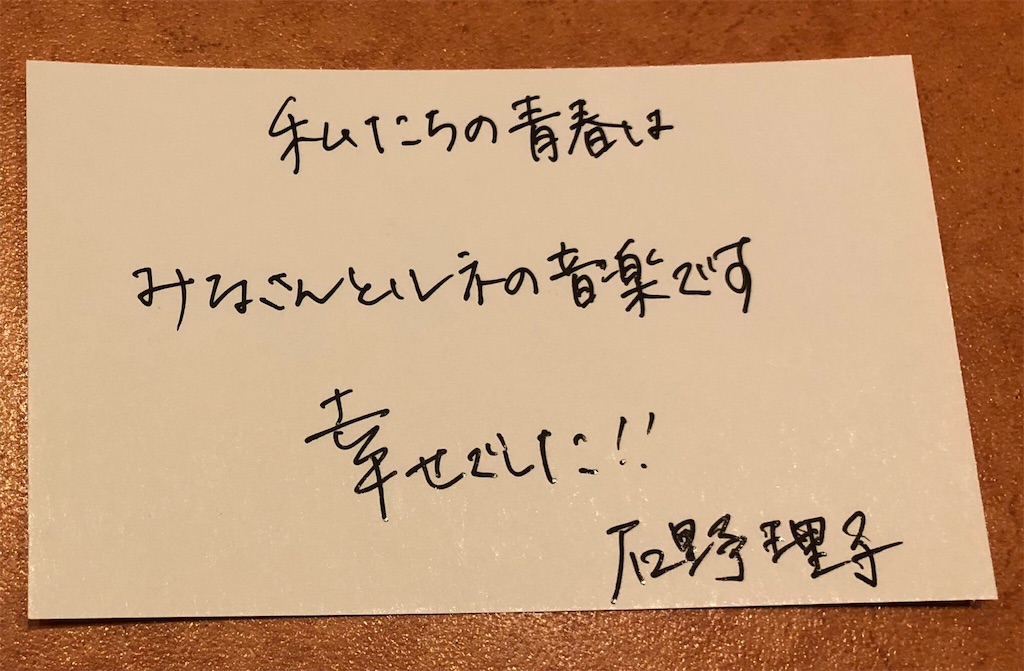 私たちの青春は
みなさんとルネの音楽です
幸せでした!!
石野理子